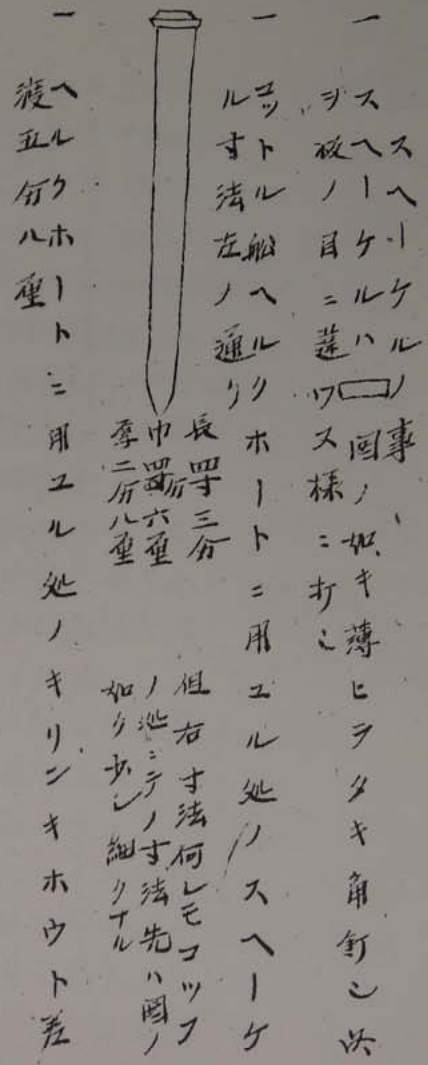 スヘーケルノ事
一 スヘーケルハ 図ノ如キ薄ヒラタキ角釘也
ヲ板ノ目ニ違ワス様ニ打也
一 コットル船ヘルクホートニ用ユル処ノスヘーケ
ル寸法左ノ通リ
長四寸三分
巾四分六重
厚二分八重
但右寸法何レモコツフ
ノ処ニテノ寸法先ハ図ノ
如ク少シ細クナル
一 ヘルクホートニ用ユル処ノキリンキホウト差
渡五分八重